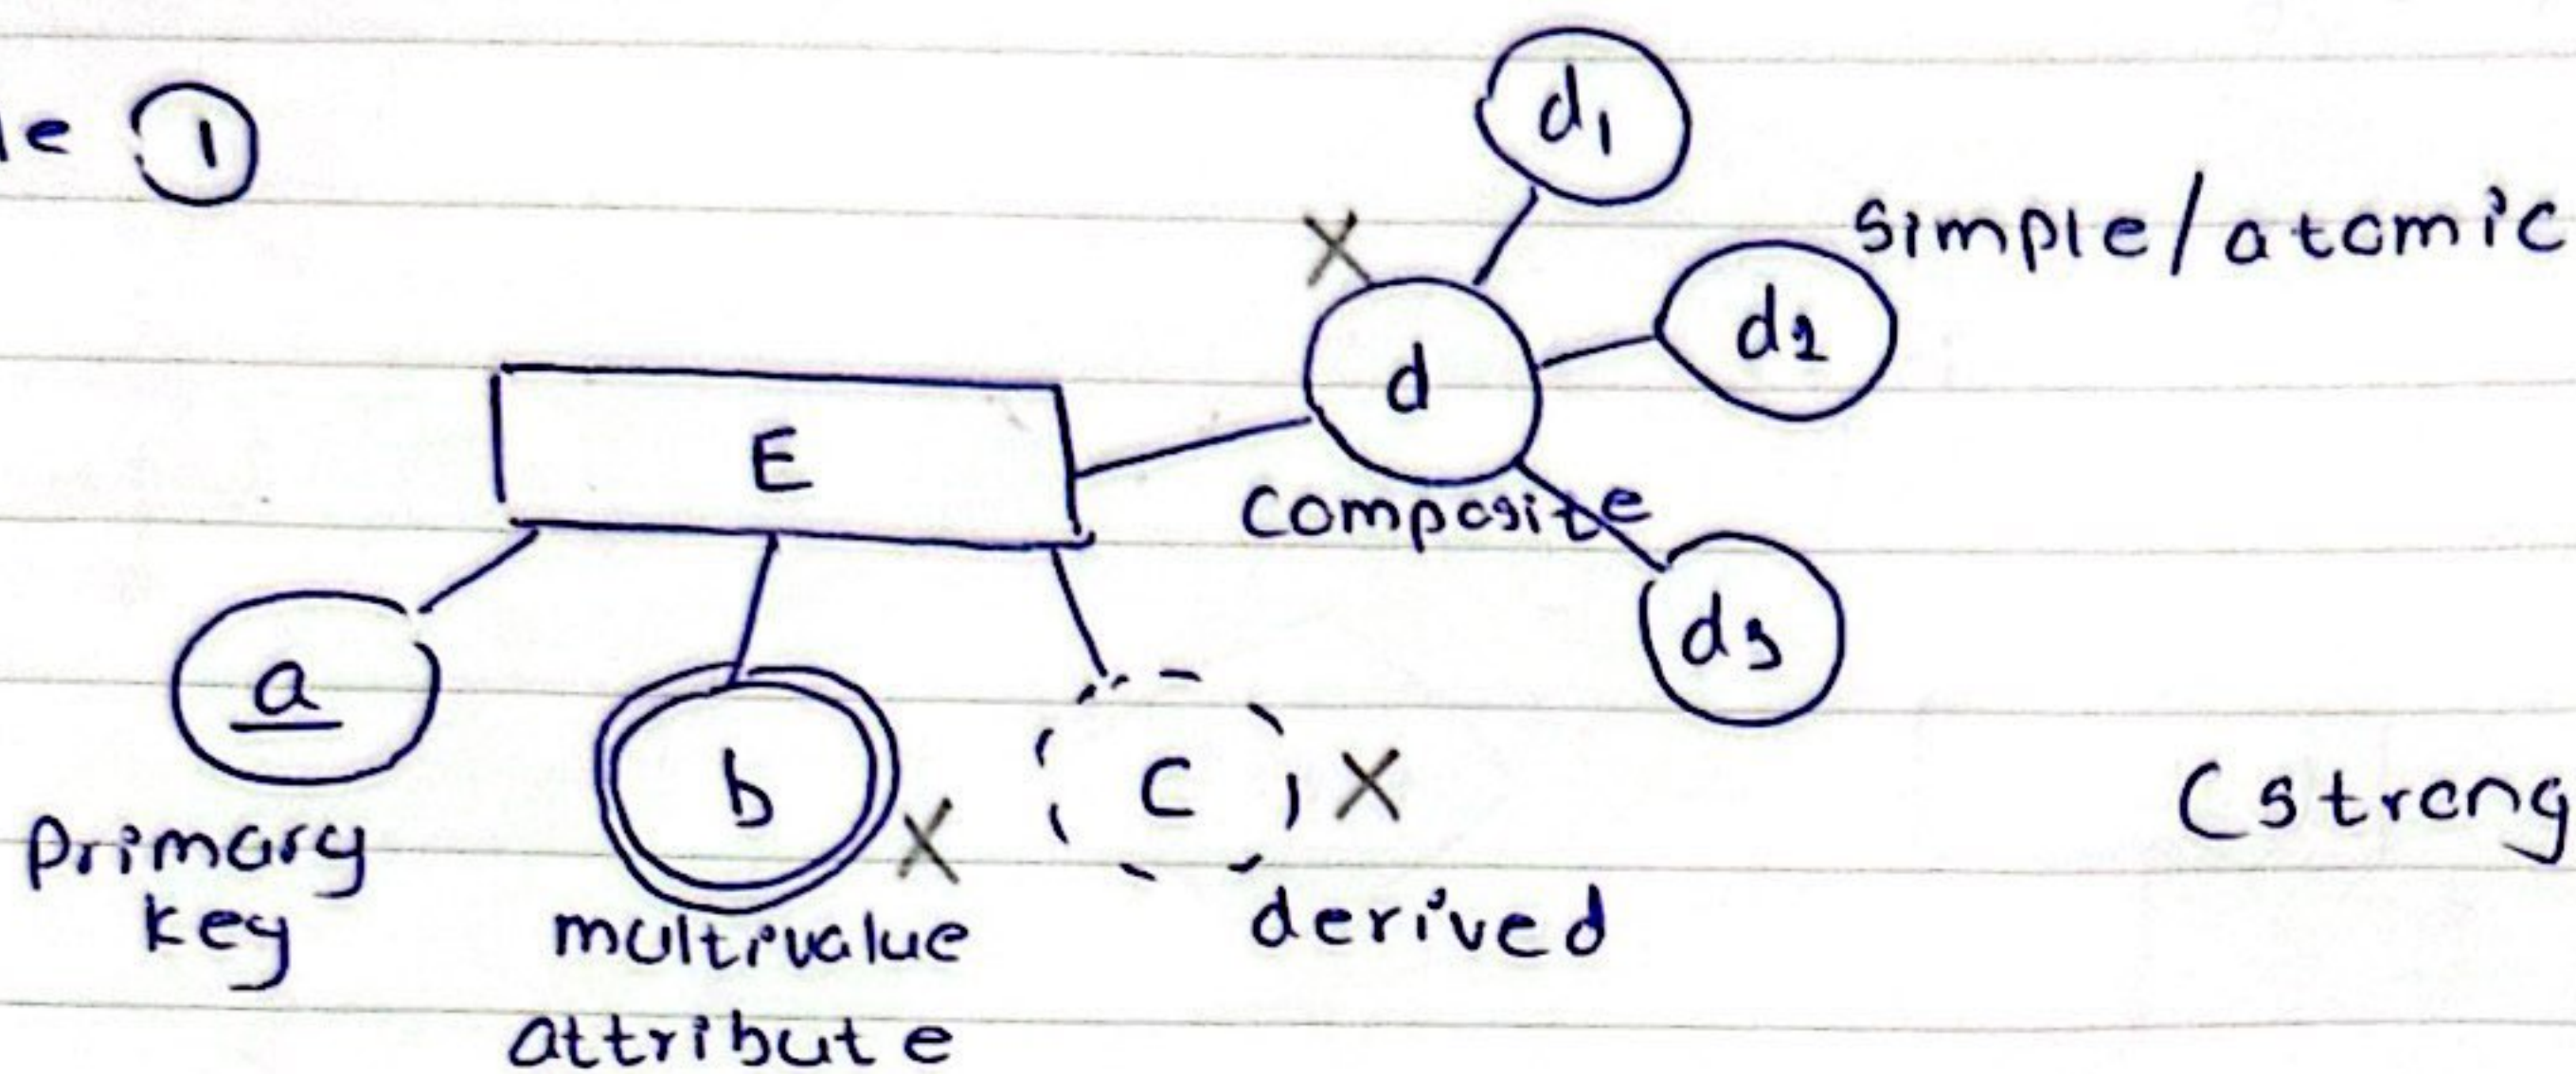 le ①
d₁
simple/atomic
d₂
d
E
composite
d₃
a
b
C
(strong
primary
key
multivalue
attribute
derived